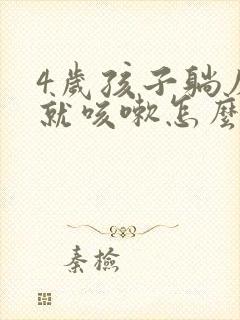 4歲孩子躺
就咳嗽怎麼
秦檢